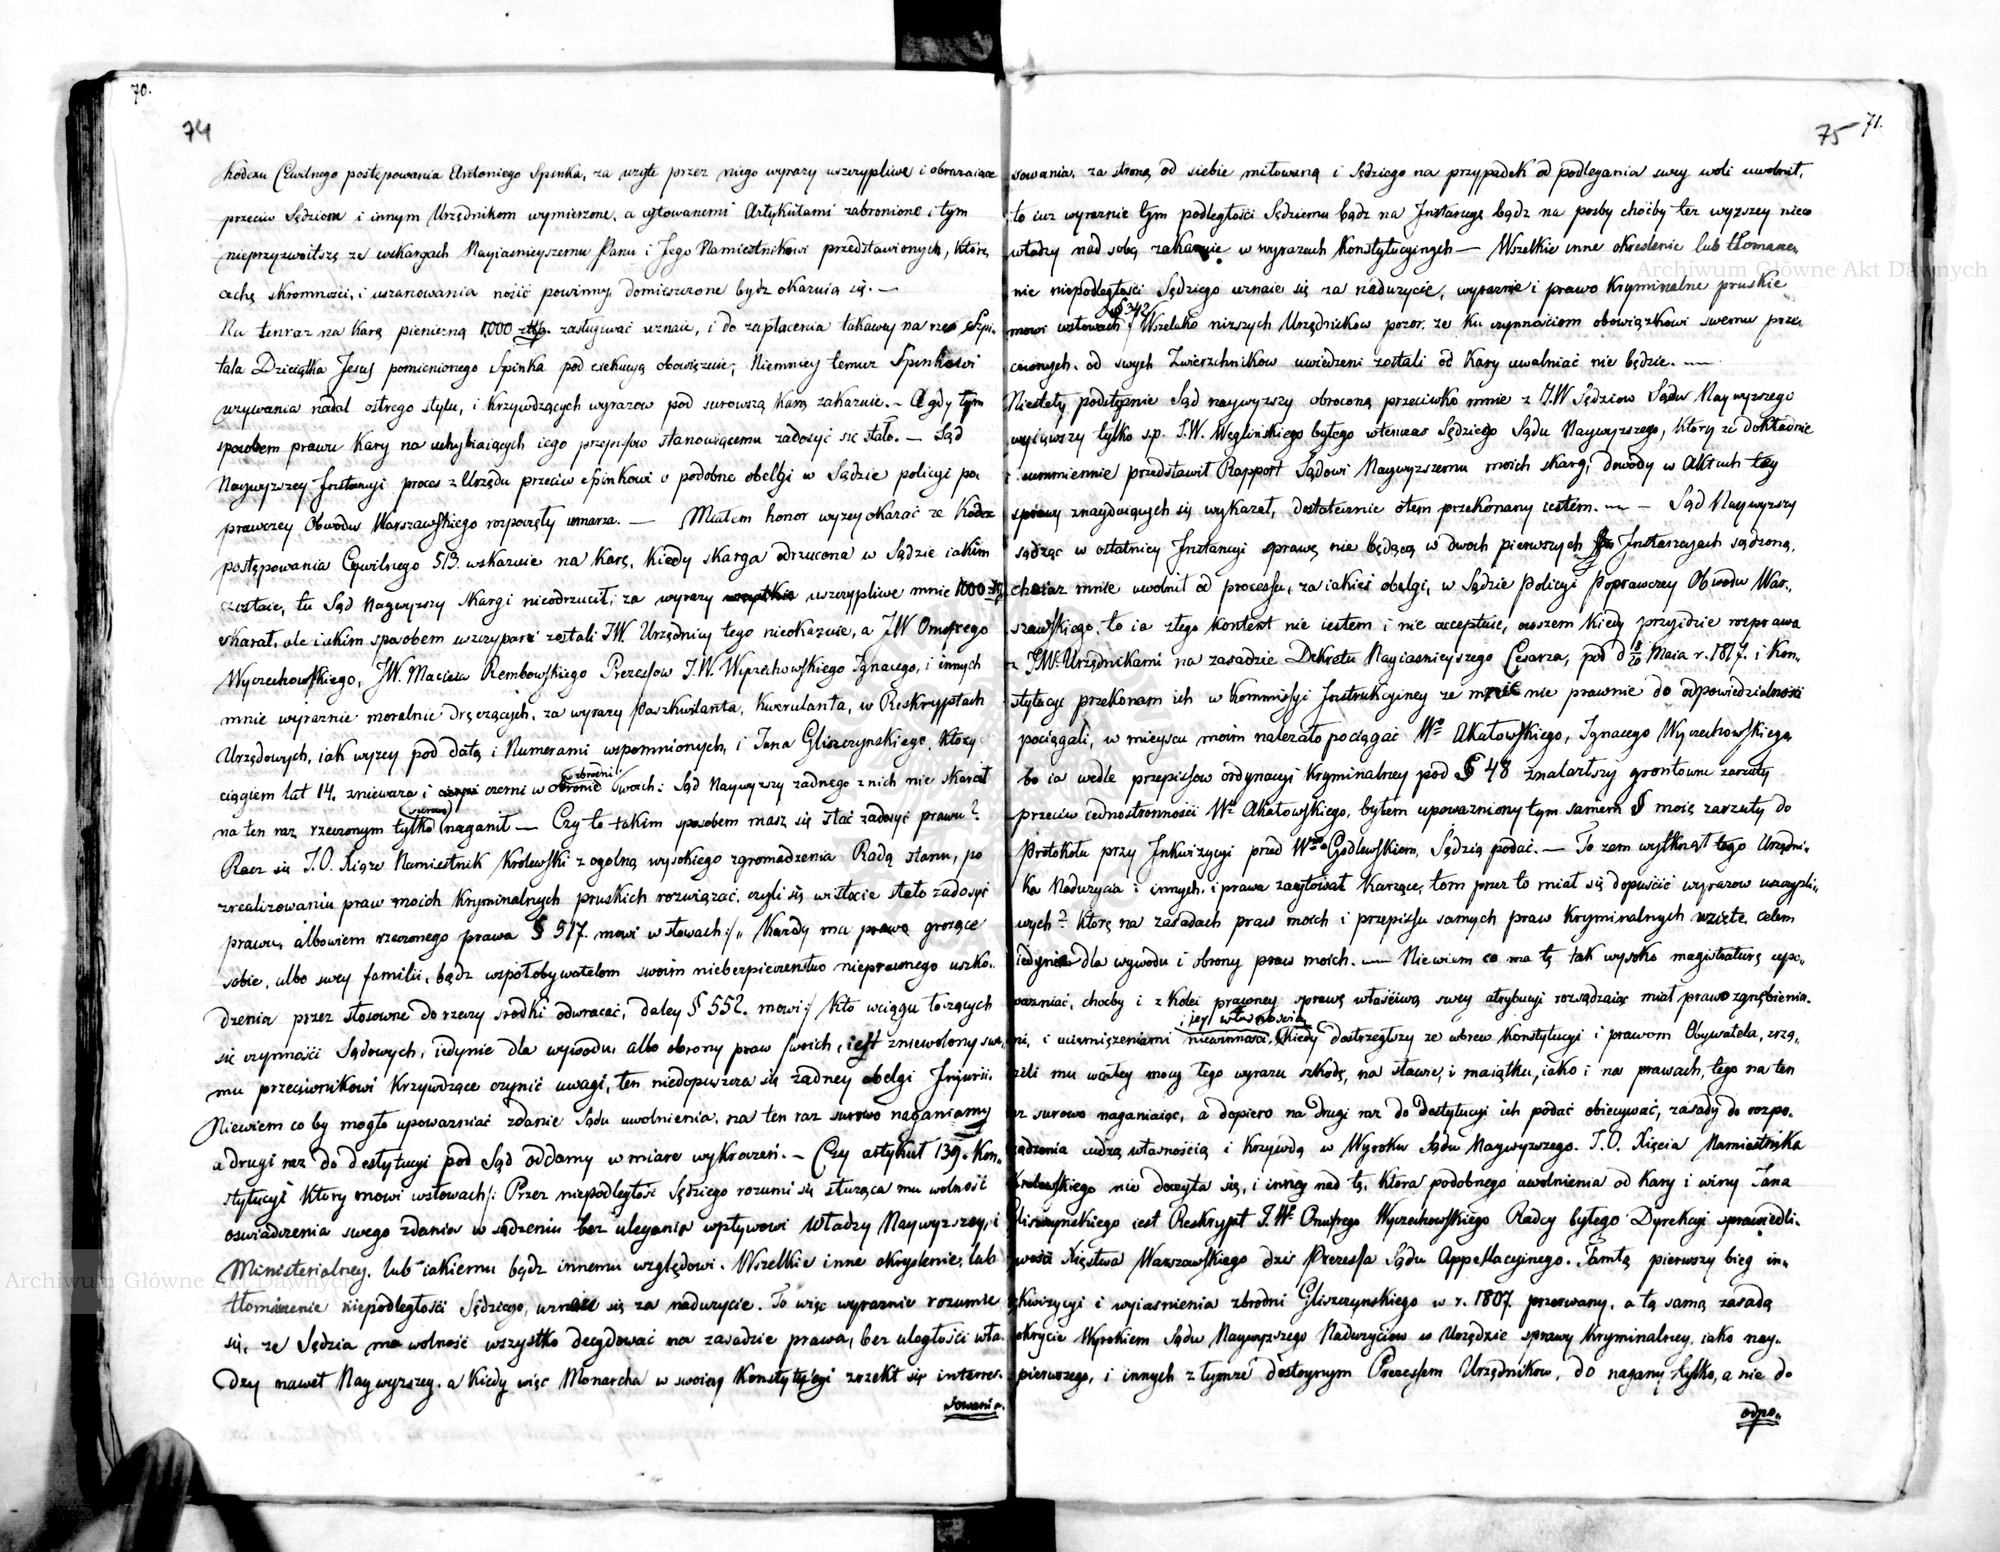 70.
74
Kodexu Cywilnego postępowania Antoniego Spinka, za użyte przez niego wyrazy uszczypliwe i obrażaiące
przeciw Sędziom i innym Urzędnikom wymierzone, a cytowanemi Artykułami zabronione i tym
nieprzyzwoitsze że w skargach Nayiaśnieyszemu Panu i Jego Namiestnikowi przedstawionych, które
cechę skromności, i uszanowania nosić powinny, domieszczone bydź okazuią się. —
Na tenraz na karę pieniężną 1000 złłp. zasługiwać uznaie, i do zapłacenia takowey na rzecz Szpi-
tala Dzieciątka Jesus pomienionego Spinka pod exekucyą obowięzuie; Niemniey temuż Spinkowi
używania nadal ostrego stylu, i krzywdzących wyrazów pod surowszą karą zakazuie. — A gdy tym
sposobem prawu kary na uchybiaiących iego przepisów stanowiącemu zadosyć się stało. — Sąd
Naywyższey Instancyi proces z Urzędu przeciw Spinkowi o podobne obelgi w Sądzie policyi po-
prawczey Obwodu Warszawskiego rozpoczęty umarza. — Miałem honor wyżey okazać że Kodex
postępowania Cywilnego 513. wskazuie na karę, kiedy skarga odrzucona w Sądzie iakim
zostaie, tu Sąd Naywyższy skargi nieodrzucił, za wyrazy uszczypliwe mnie 1000 złł
skarał, ale iakim sposobem uszczypani zostali JW. Urzędnicy tego nieokazuie, a JW Onufrego
Wyczechowskiego, JW. Macieia Rembowskiego Prezesów J.W. Wyczechowskiego Ignacego, i innych
mnie wyraznie moralnie dręczących, za wyrazy Paszkwilanta, Kwerulanta, w Reskryptach
Urzędowych, iak wyżey pod datą i Numerami wspomnionych, i Jana Gliszczynskiego, który
ciągiem lat 14. znieważa i czerni w obronie zbrodni swoich; Sąd Naywyższy żadnego z nich nie skarał
na ten raz rzeczonym tylko (surowo) naganił — Czy to takim sposobem masz się stać zadosyć prawu?
Racz się J.O. Xiąże Namiestnik Królewski z ogólną wysokiego zgromadzenia Radą stanu, po
zrealizowaniu praw moich kryminalnych pruskich rozwiązać, czyli się w istocie stało zadosyć
prawu, albowiem rzeczonego prawa § 517. mówi w słowach :/ „ Każdy ma prawo grożące
sobie, albo swey familii, bądź współobywatelom swoim niebezpieczeństwo nieprawnego uszko-
dzenia przez stosowne do rzeczy srodki odwracać, daley § 552. mówi :/ Kto wciągu toczących
się czynności Sądowych, iedynie dla wywodu, albo obrony praw swoich, iest zniewolony swe-
mu przeciwnikowi krzywdzące czynić uwagi, ten niedopuszcza się żadney obelgi Injurii.
Niewiem co by mogło upoważniać zdanie Sądu uwolnienia, na ten raz surowo naganiamy
a drugi raz do destytucyi pod Sąd oddamy w miarę wykroczeń. — Czy artykuł 139. Kon-
stytucyi który mówi w słowach /: Przez niepodległość Sędziego rozumi się służąca mu wolność
oswiadczenia swego zdania w sądzeniu bez ulegania wpływowi Władzy Naywyższey, i
Ministerialney, lub iakiemu bądź innemu względowi. Wszelkie inne okryslenie, lub
tłomaczenie niepodległości Sędziego, uznaie się za nadużycie. To więc wyraznie rozumie
się, że Sędzia ma wolność wszystko decydować na zasadzie prawa, bez uległości wła-
dzy nawet Naywyższey, a kiedy więc Monarcha w swoiey Konstytycyi zrzekł się interes-
sowania.
75
71.
sowania, za stroną od siebie miłowaną i Sędziego na przypadek od podlegania swey woli uwolnił,
to iuż wyraznie tym podległości Sędziemu bądź na Instancyę bądź na prosby choćby też wyższey nieco
władzy nad sobą zakazuie w wyrazach konstytucyinych — Wszelkie inne określenie lub tłomacze-
nie niepodległości Sędziego uznaie się za nadużycie, wyraznie i prawo kryminalne pruskie
§ 342
mowi wsłowach / Wszelako niższych Urzędników pozor, że ku czynnościom obowiązkowi swemu prze-
ciwnych, od swych Zwierzchników uwiedzeni zostali od kary uwalniać nie będzie. —
Niestety podstępnie Sąd naywyższy obroconą przeciwko mnie z J.W Sędziow Sądu Naywyższego
wyiąwszy tylko sp. J.W. Węglińskiego byłego wtenczas Sędziego Sądu Naywyższego, który że dokładnie
i summiennie przedstawił Rapport Sądowi Naywyższemu moich skarg, dowody w Aktach tey
sprawy znayduiących się wykazał, dostatecznie otem przekonany iestem. — Sąd Naywyższy
sądząc w ostatniey Instancyi sprawę nie będącą w dwoch pierwszych Instancyach sądzoną,
chociaż mnie uwolnił od processu, za iakieś obelgi, w Sądzie Policyi Poprawczey Obwodu War-
szawskiego, to ia z tego kontent nie iestem i nie acceptuię, owszem kiedy przyidzie rozprawa
z J.W. Urzędnikami na zasadzie Dekretu Nayiasnieyszego Cesarza, pod d 8/20 Maia r. 1817. i Kon-
stytucyi przekonam ich w kommissyi Instrukcyiney że mnie nie prawnie do odpowiedzialności
pociągali, w mieyscu moim należało pociągać Wo Akałowskiego, Ignacego Wyczechowskiego,
bo ia wedle przepissow ordynacyi kryminalney pod § 48 znalazłszy grontowne zarzuty
przeciw iednostronności Wo Akałowskiego, byłem upoważniony tym samem § moie zarzuty do
Protokołu przy Inkwizycyi przed Wym Godlewskiem, Sędzią podać. — To żem wytknął tego Urzędni-
ka Nadużycia i innych, i prawa zacytował karzące, tom przez to miał się dopuścić wyrazow uszczypli-
wych? które na zasadach praw moich i przepissu samych praw kryminalnych wzięte, celem
iedynie dla wywodu i obrony praw moich. — Niewiem co ma tę tak wysoko magistraturę upo-
ważniać, choćby i z kolei prawney sprawę właściwą swey atrybucyi rozsądzaiąc miał prawo zgnębienia-
mi, i uciemiężeniami niewinności, jey własnością, kiedy dostrzegłszy że wbrew Konstytucyi i prawom Obywatela, zrzą-
dzili mu w całey mocy tego wyrazu szkodę, na sławie, i maiątku, iako i na prawach, tego na ten
raz surowo naganiaiąc, a dopiero na drugi raz do destytucyi ich podać obiecywać, zasady do rozpo-
rządzenia cudzą własnością i krzywdą w Wyroku Sądu Naywyższego. J.O. Xięcia Namiestnika
Królewskiego nie doczyta się, i inney nad tę, która podobnego uwolnienia od kary i winy Jana
Gliszczynskiego iest Reskrypt J.Wo Onufrego Wyczechowskiego Radcy byłego Dyrekcyi sprawiedli-
wości Xięstwa Warszawskiego dziś Prezessa Sądu Appellacyinego. Tamtą pierwszy bieg in-
kwizycyi i wyiasnienia zbrodni Gliszczynskiego w r. 1807. przerwany, a tą samą zasadą
okrycie Wyrokiem Sądu Naywyższego Nadużyciów w Urzędzie sprawy kryminalney, iako nay-
pierwszego, i innych z tymże dostoynym Prezessem Urzędnikow, do nagany tylko, a nie do
odpo-
Archiwum Główne Akt Dawnych
Archiwum Główne Akt Dawnych